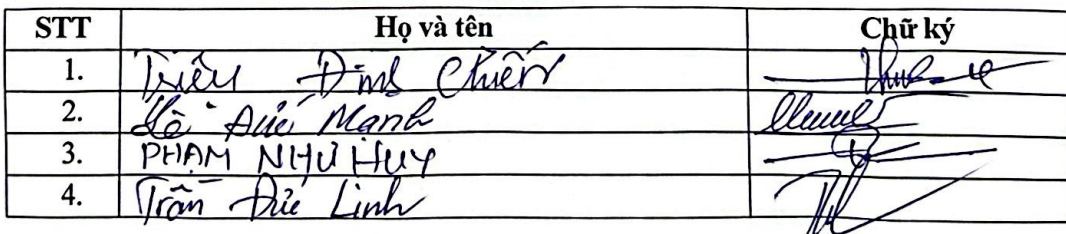 STT Họ và tên Chữ ký
1. Triệu Đình Chiến
2. Lê Đức Mạnh
3. PHẠM NHƯ HUY
4. Trần Đức Linh